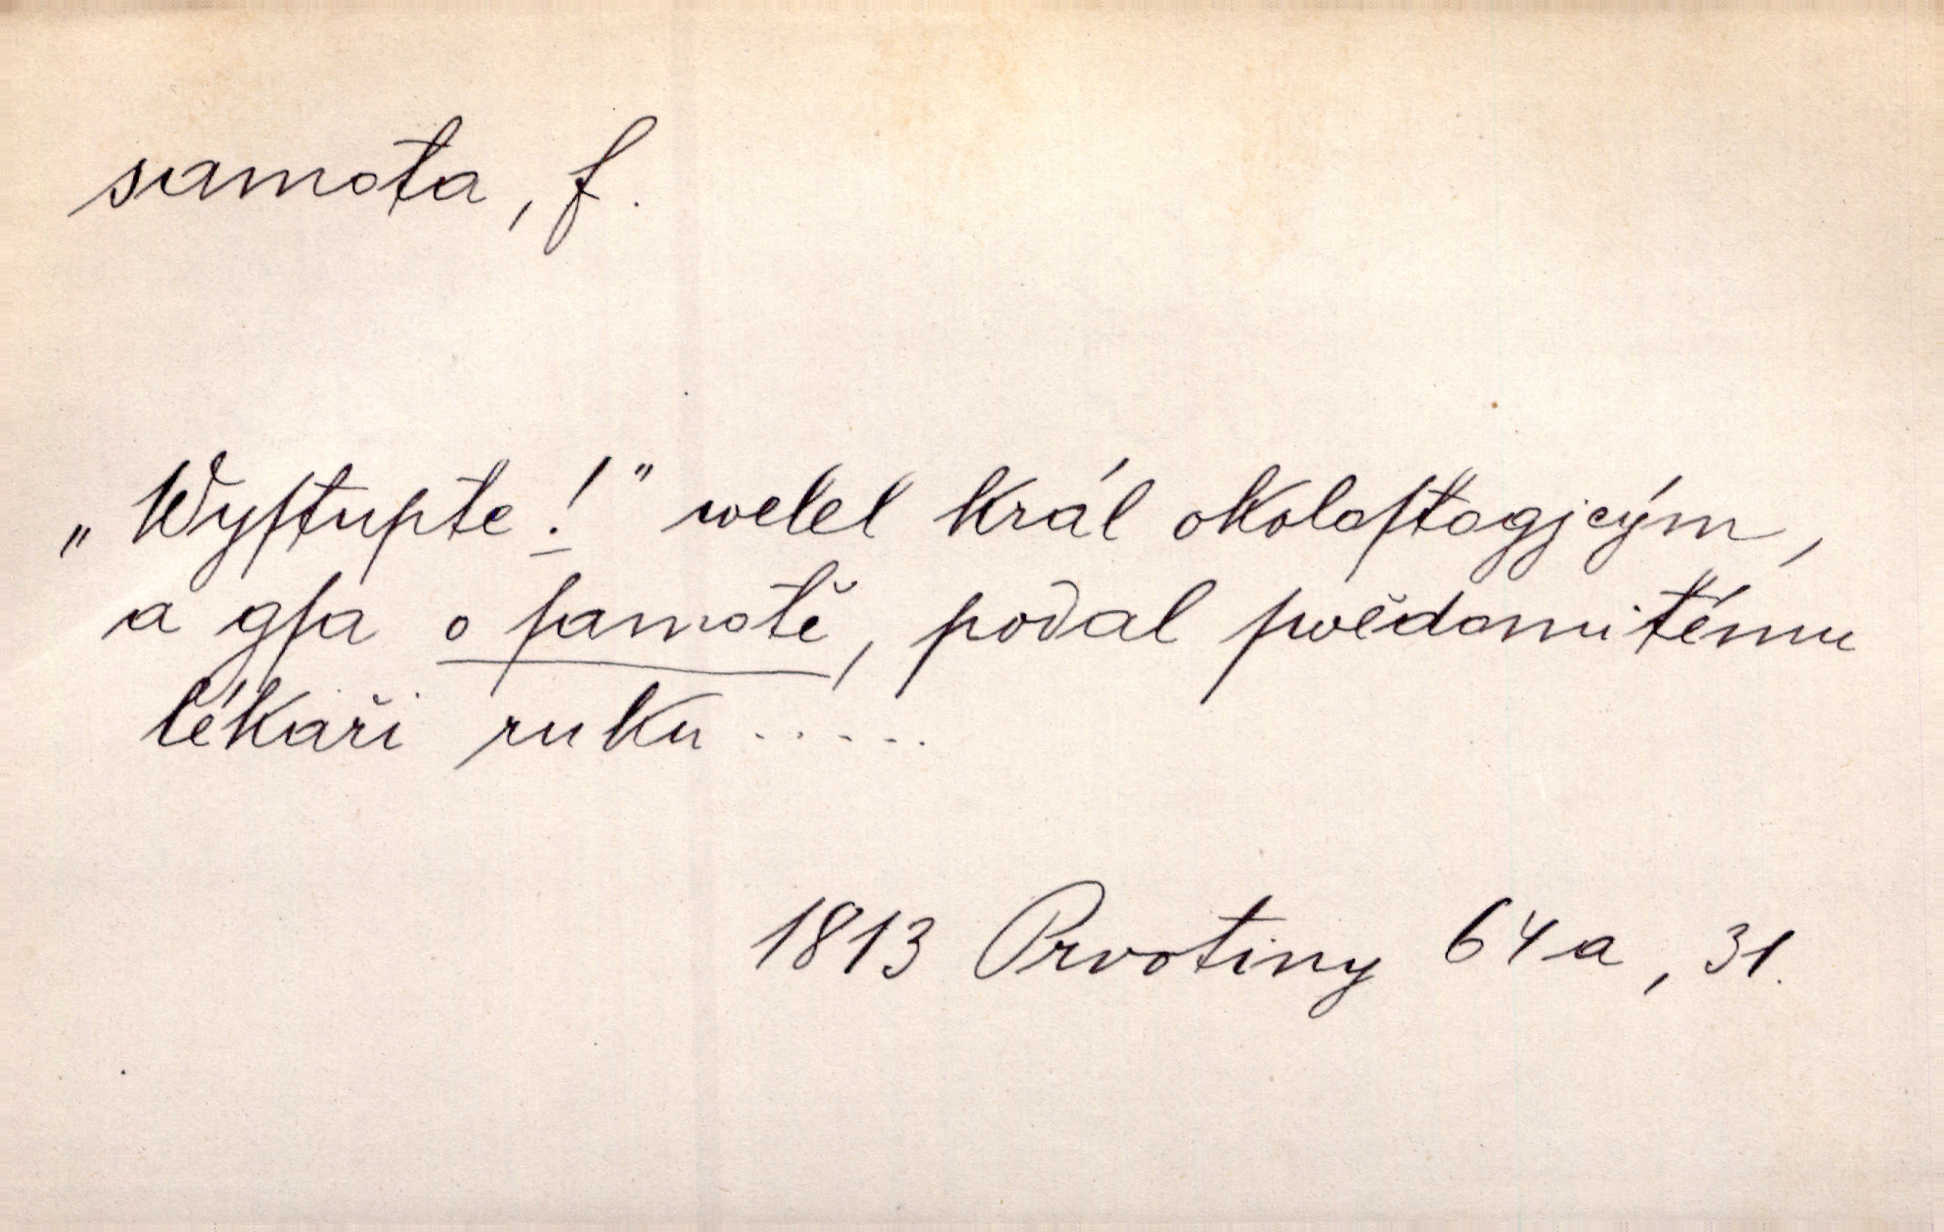 samota, f.
„Wyſtupte!" welel král okoloſtogjcým,
a gſa o ſamotě, podal ſwědomitému
lékaři ruku.....
1813 Prvotiny 64a, 31.